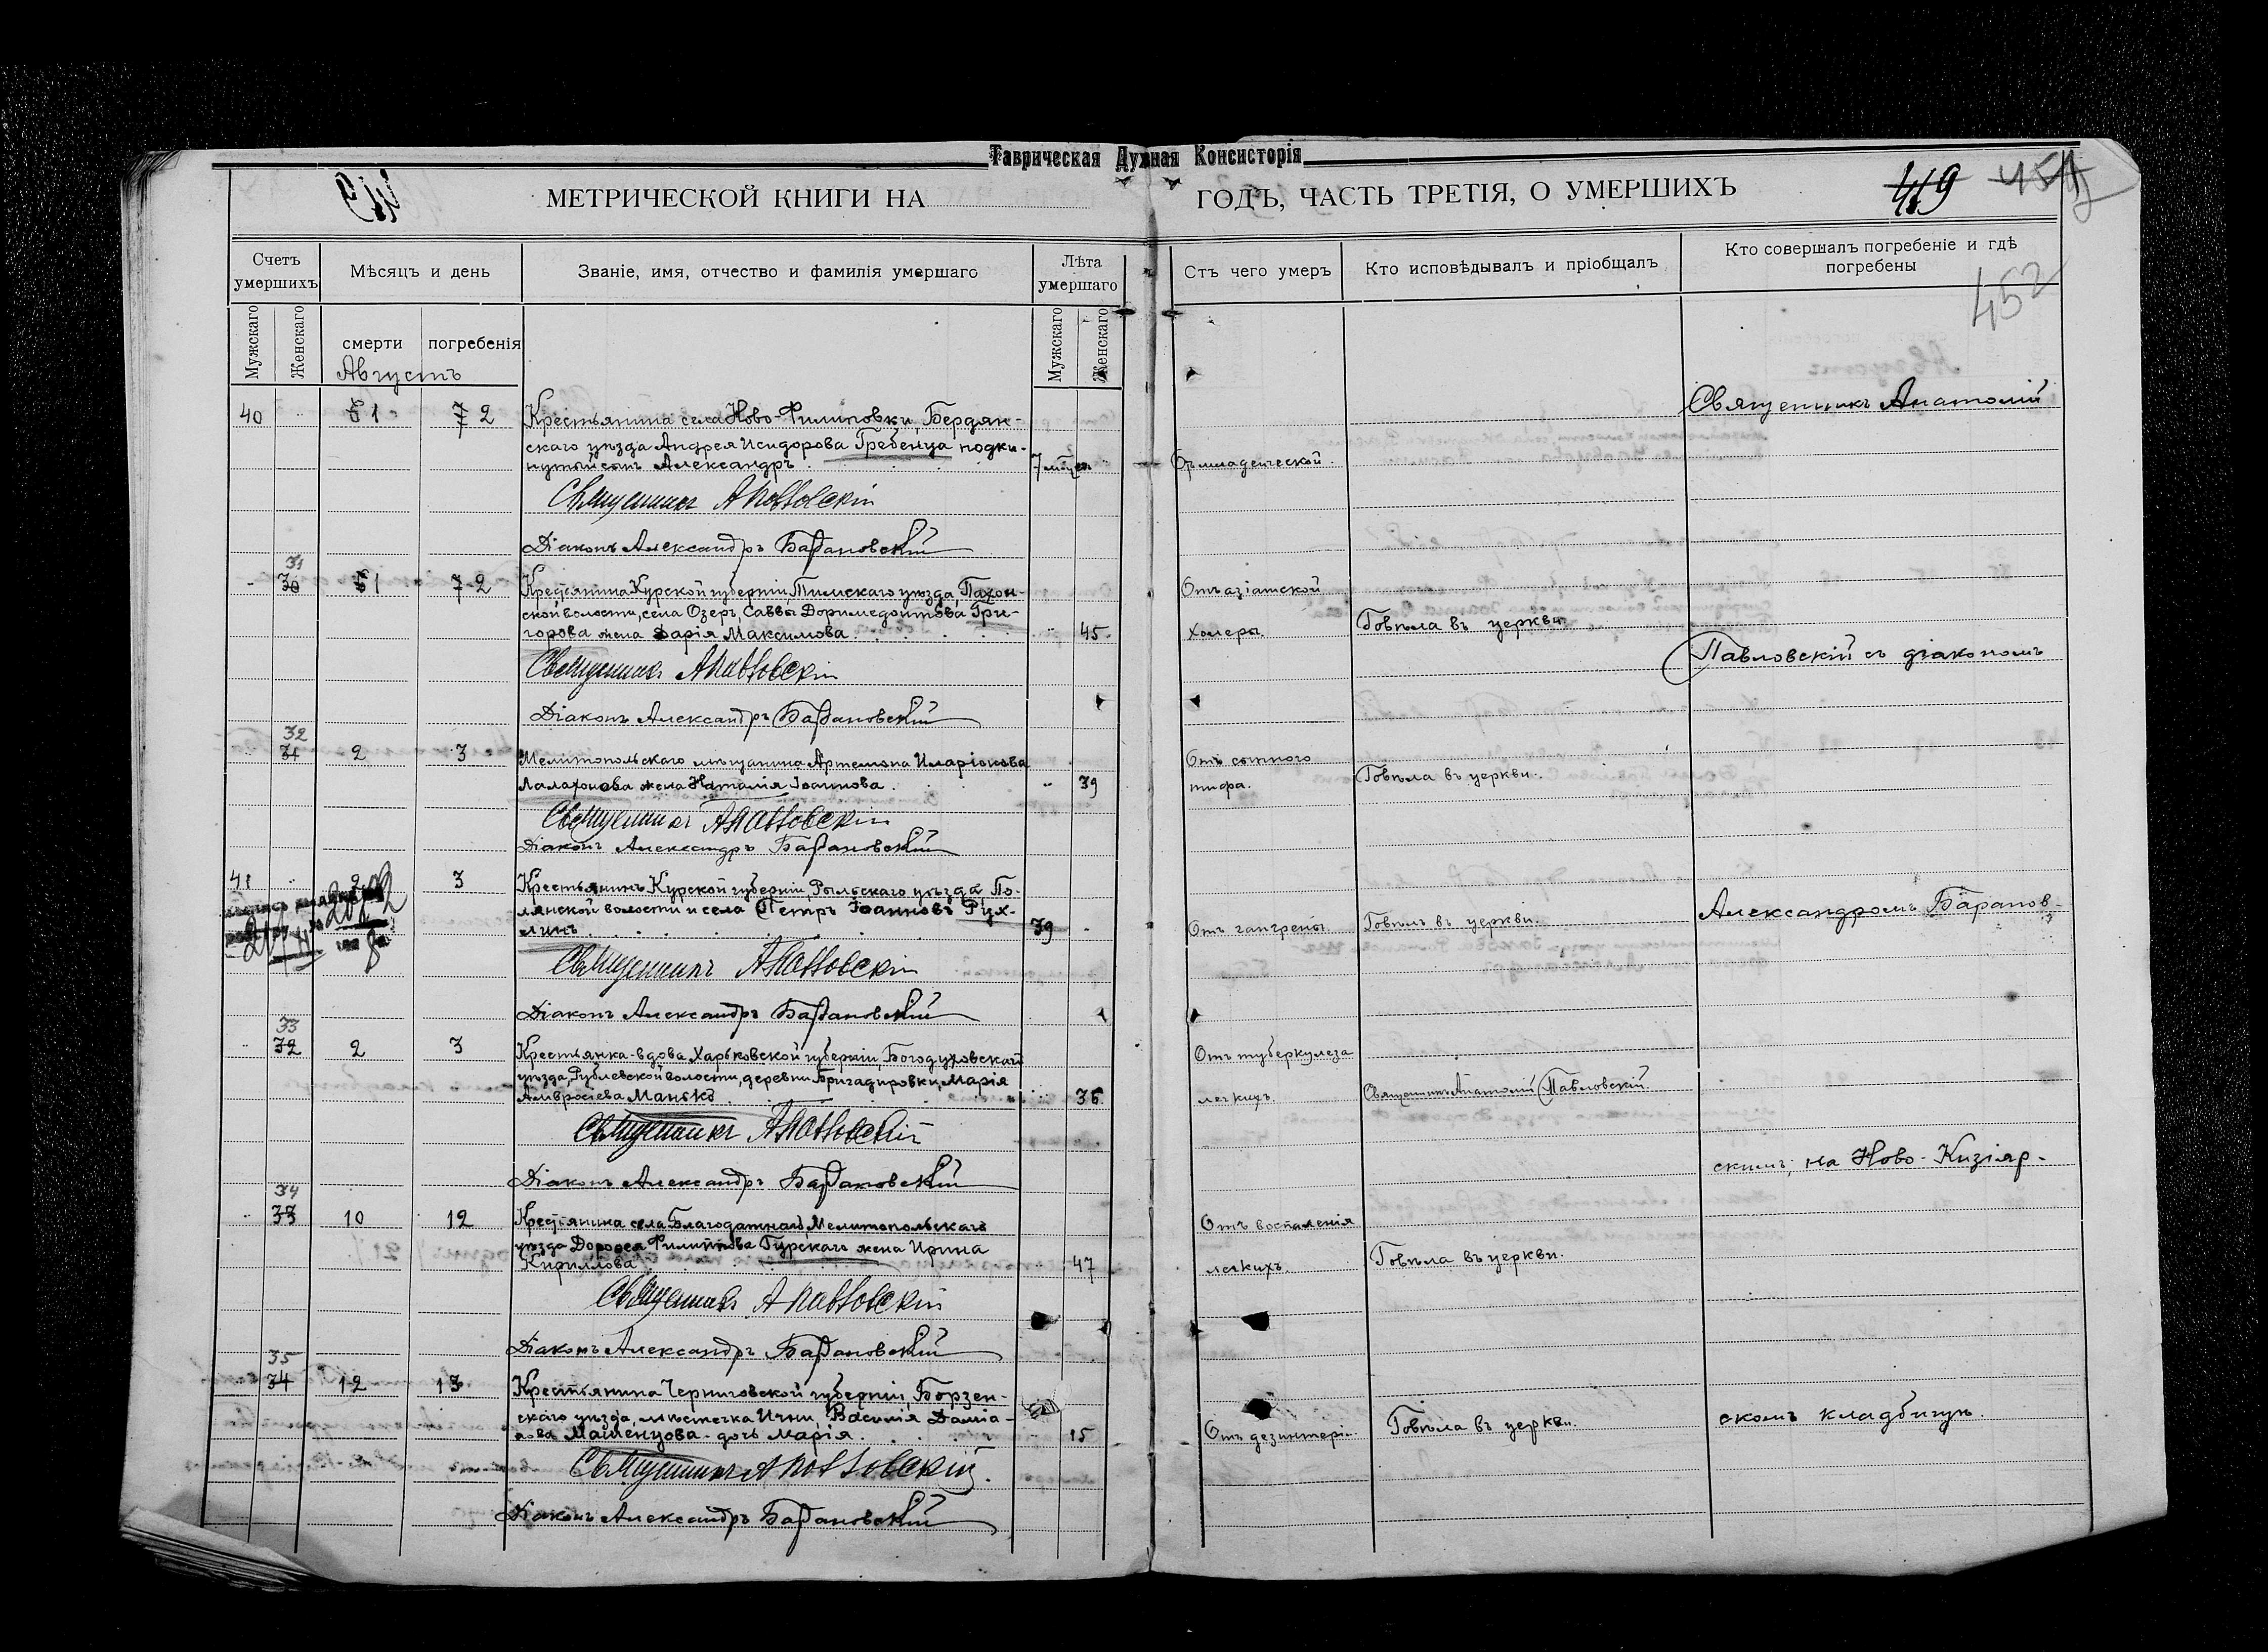 Таврическая Духная Консисторія
МЕТРИЧЕСКОЙ КНИГИ НА
ГОДЪ, ЧАСТЬ ТРЕТІЯ, О УМЕРШИХЪ
419
452
Счетъ умершихъ
Мѣсяцъ и день
Званіе, имя, отчество и фамилія умершаго
Лѣта умершаго
Отъ чего умеръ
Кто исповѣдывалъ и пріобщалъ
Кто совершалъ погребеніе и гдѣ погребены
Мужскаго
Женскаго
смерти
погребенія
Мужскаго
Женскаго
Августъ
40 1 2 Крестьянина села Ново-Филиповки, Бердян-
скаго уѣзда Андрея Исидорова Гребенца подки-
нутый сынъ Александръ. 7 мѣсец. Отъ младенческой.
Священникъ Анатолій
Священникъ АПавловскій
Діаконъ Александръ Барановскій
31
30 1 2 Крестьянина Курской губерніи, Тимскаго уѣзда, Пахон-
ской волости, села Озеръ, Саввы Доримедонтова Гри-
горова жена Дарія Максимова. 45. Отъ азіатской
холеры. Говѣла въ церкви.
Павловскій съ діакономъ
Священникъ АПавловскій
Діаконъ Александръ Барановскій
32
31 2 3 Мелитопольскаго мѣщанина Артемона Иларіонова
Малахонова жена Наталія Іоаннова. 39 Отъ сыпного
тифа. Говѣла въ церкви.
Священникъ АПавловскій
Діаконъ Александръ Барановскій
41 2 3 Крестьянинъ Курской губерніи, Рыльскаго уѣзда, По-
лянской волости и села Петръ Іоанновъ Рух-
линъ. 39 Отъ гангрены. Говѣлъ въ церкви.
Александромъ Баранов-
Священникъ АПавловскій
Діаконъ Александръ Барановскій
33
32 2 3 Крестьянка-вдова Харьковской губерніи, Богодуховскаго
уѣзда, Рублевской волости, деревни Бригадировки, Марія
Амвросіева Манько. 36. Отъ туберкулеза
легкихъ. Священникъ Анатолій Павловскій.
Священникъ АПавловскій
скимъ, на Ново-Кизіяр-
Діаконъ Александръ Барановскій
34
33 10 12 Крестьянина села Благодатнаго Мелитопольскаго
уѣзда Дорофея Филиппова Гурскаго жена Ирина
Кириллова. 47 Отъ воспаленія
легкихъ. Говѣла въ церкви.
Священникъ АПавловскій
Діаконъ Александръ Барановскій
35
34 12 13 Крестьянина Черниговской губерніи, Борзен-
скаго уѣзда, мѣстечка Ични, Василія Даміа-
нова дочь Марія. 15 Отъ дезинтеріи. Говѣла въ церкви.
скомъ кладбищѣ.
Священникъ АПавловскій.
Діаконъ Александръ Барановскій